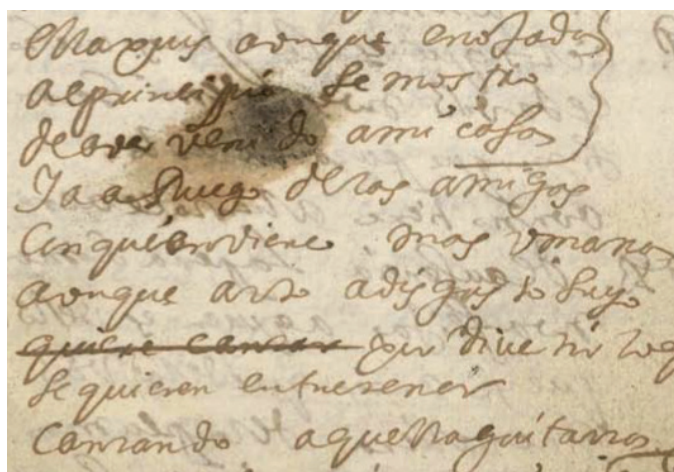 el Marqués aonque enojado
al principio se mostro
de aver venido a mi casa
Ja a Ruego de los amigos
con quien viene mas vmano
aonque arto a disgusto suyo
quiere cantar por divertirlos
se quieren entretener
Cantando aquella guitarra